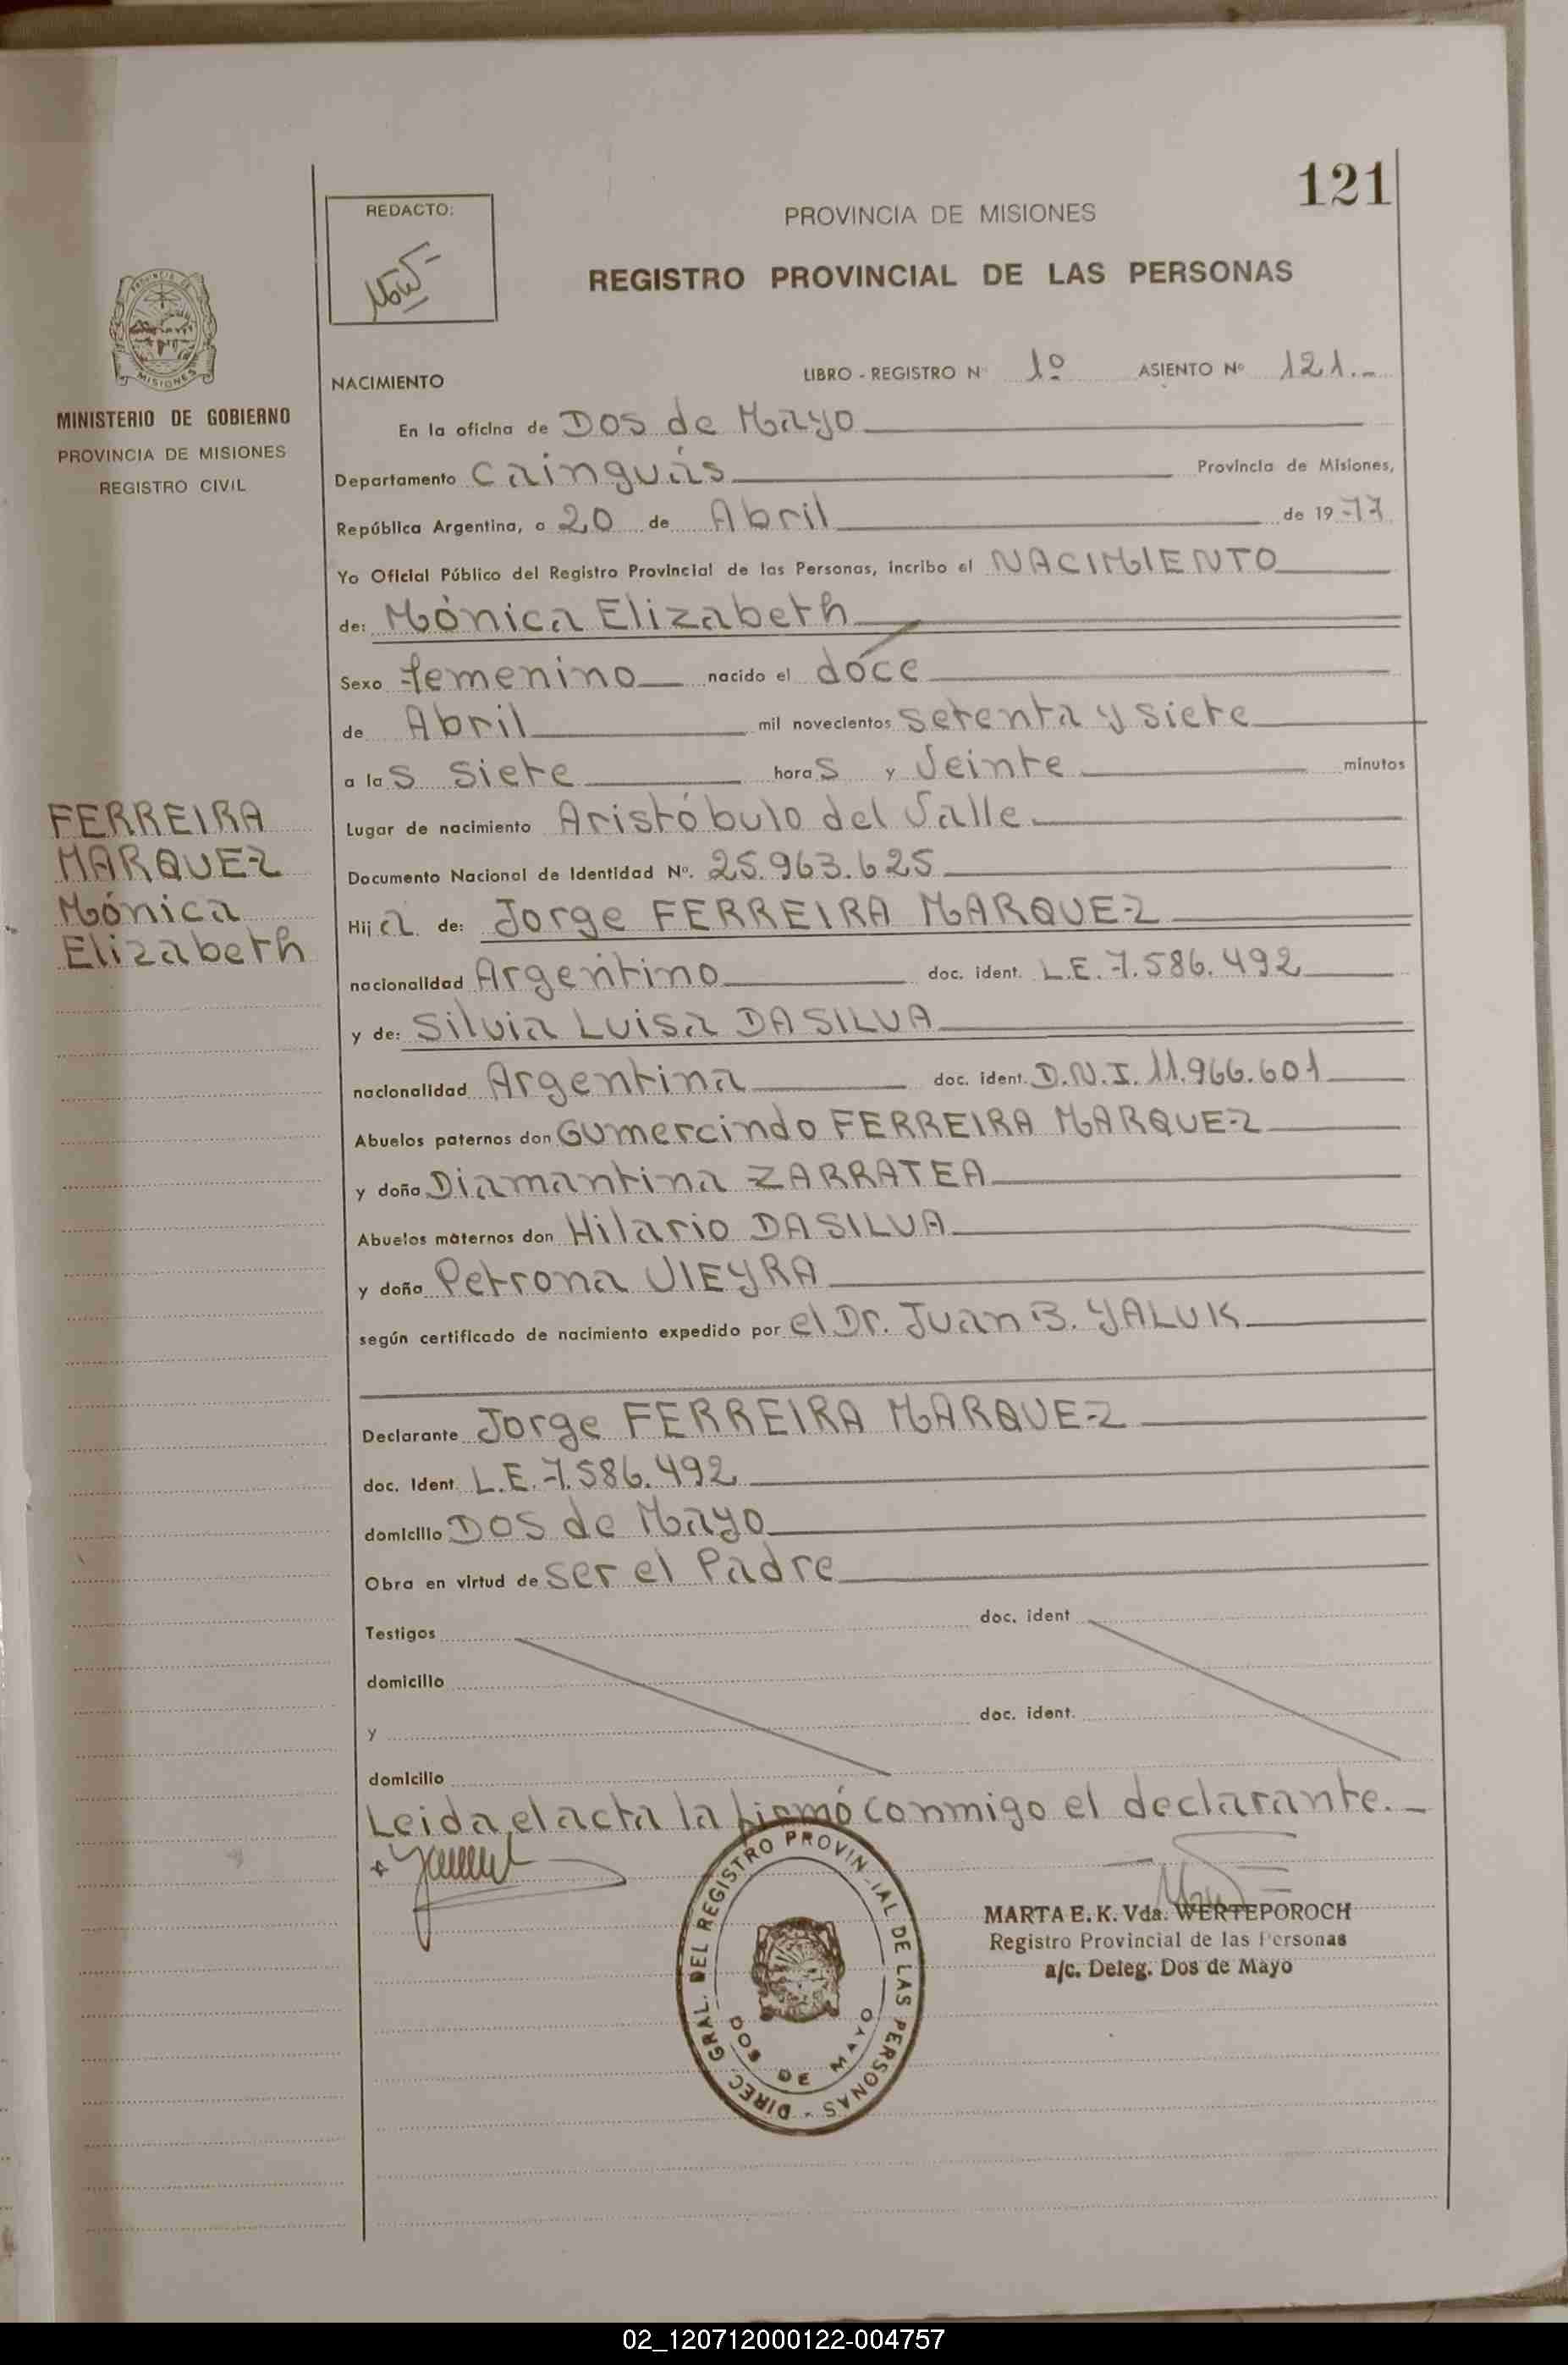 121
REDACTO:
PROVINCIA DE MISIONES
REGISTRO PROVINCIAL DE LAS PERSONAS
MISIONES
MINISTERIO DE GOBIERNO
PROVINCIA DE MISIONES
REGISTRO CIVIL
NACIMIENTO LIBRO - REGISTRO N° 1º ASIENTO Nº 121.-
En la oficina de Dos de Mayo
Departamento Cainguás Provincia de Misiones,
República Argentina, a 20 de Abril de 1977
Yo Oficial Público del Registro Provincial de las Personas, incribo el NACIMIENTO
de: Mónica Elizabeth
Sexo femenino nacido el doce
de Abril mil novecientos setenta y siete
a las siete horas y veinte minutos
FERREIRA
MARQUEZ
Mónica
Elizabeth
Lugar de nacimiento Aristóbulo del Valle
Documento Nacional de Identidad Nº. 25.963.625
Hija de: Jorge FERREIRA MARQUEZ
nacionalidad Argentino doc. ident. L.E. 7.586.492
y de: Silvia Luisa DASILVA
nacionalidad Argentina doc. ident. D.N.I. 11.966.601
Abuelos paternos don Gumercindo FERREIRA MARQUEZ
y doña Diamantina ZARRATEA
Abuelos maternos don Hilario DASILVA
y doña Petrona VIEYRA
según certificado de nacimiento expedido por el Dr. Juan B. YALUK
Declarante Jorge FERREIRA MARQUEZ
doc. Ident. L.E. 7.586.492
domicilio Dos de Mayo
Obra en virtud de ser el Padre
Testigos doc. ident
domicilio
y doc. ident.
domicilio
Leida el acta la firmó conmigo el declarante.-
DIREC. GRAL. DEL REGISTRO PROVINCIAL DE LAS PERSONAS -
DOS DE MAYO
MARTA E. K. Vda. WERTEPOROCH
Registro Provincial de las Personas
a/c. Deleg. Dos de Mayo
02_120712000122-004757